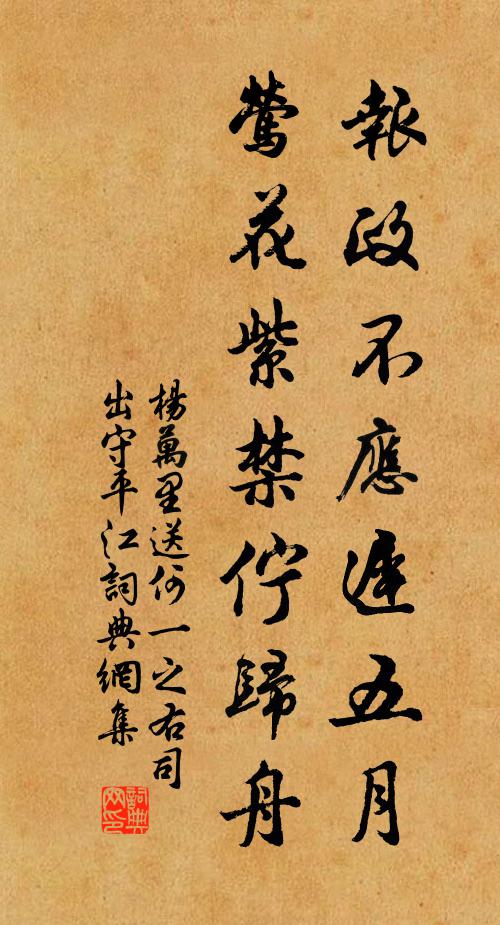 報政不應遲五月
鶯花紫禁佇歸舟
楊萬里送何一之右司
出守平江詞典網集
詞典
网印